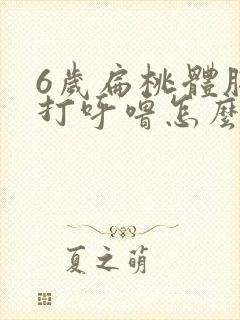 6歲扁桃體
打呼嚕怎麼
夏之萌